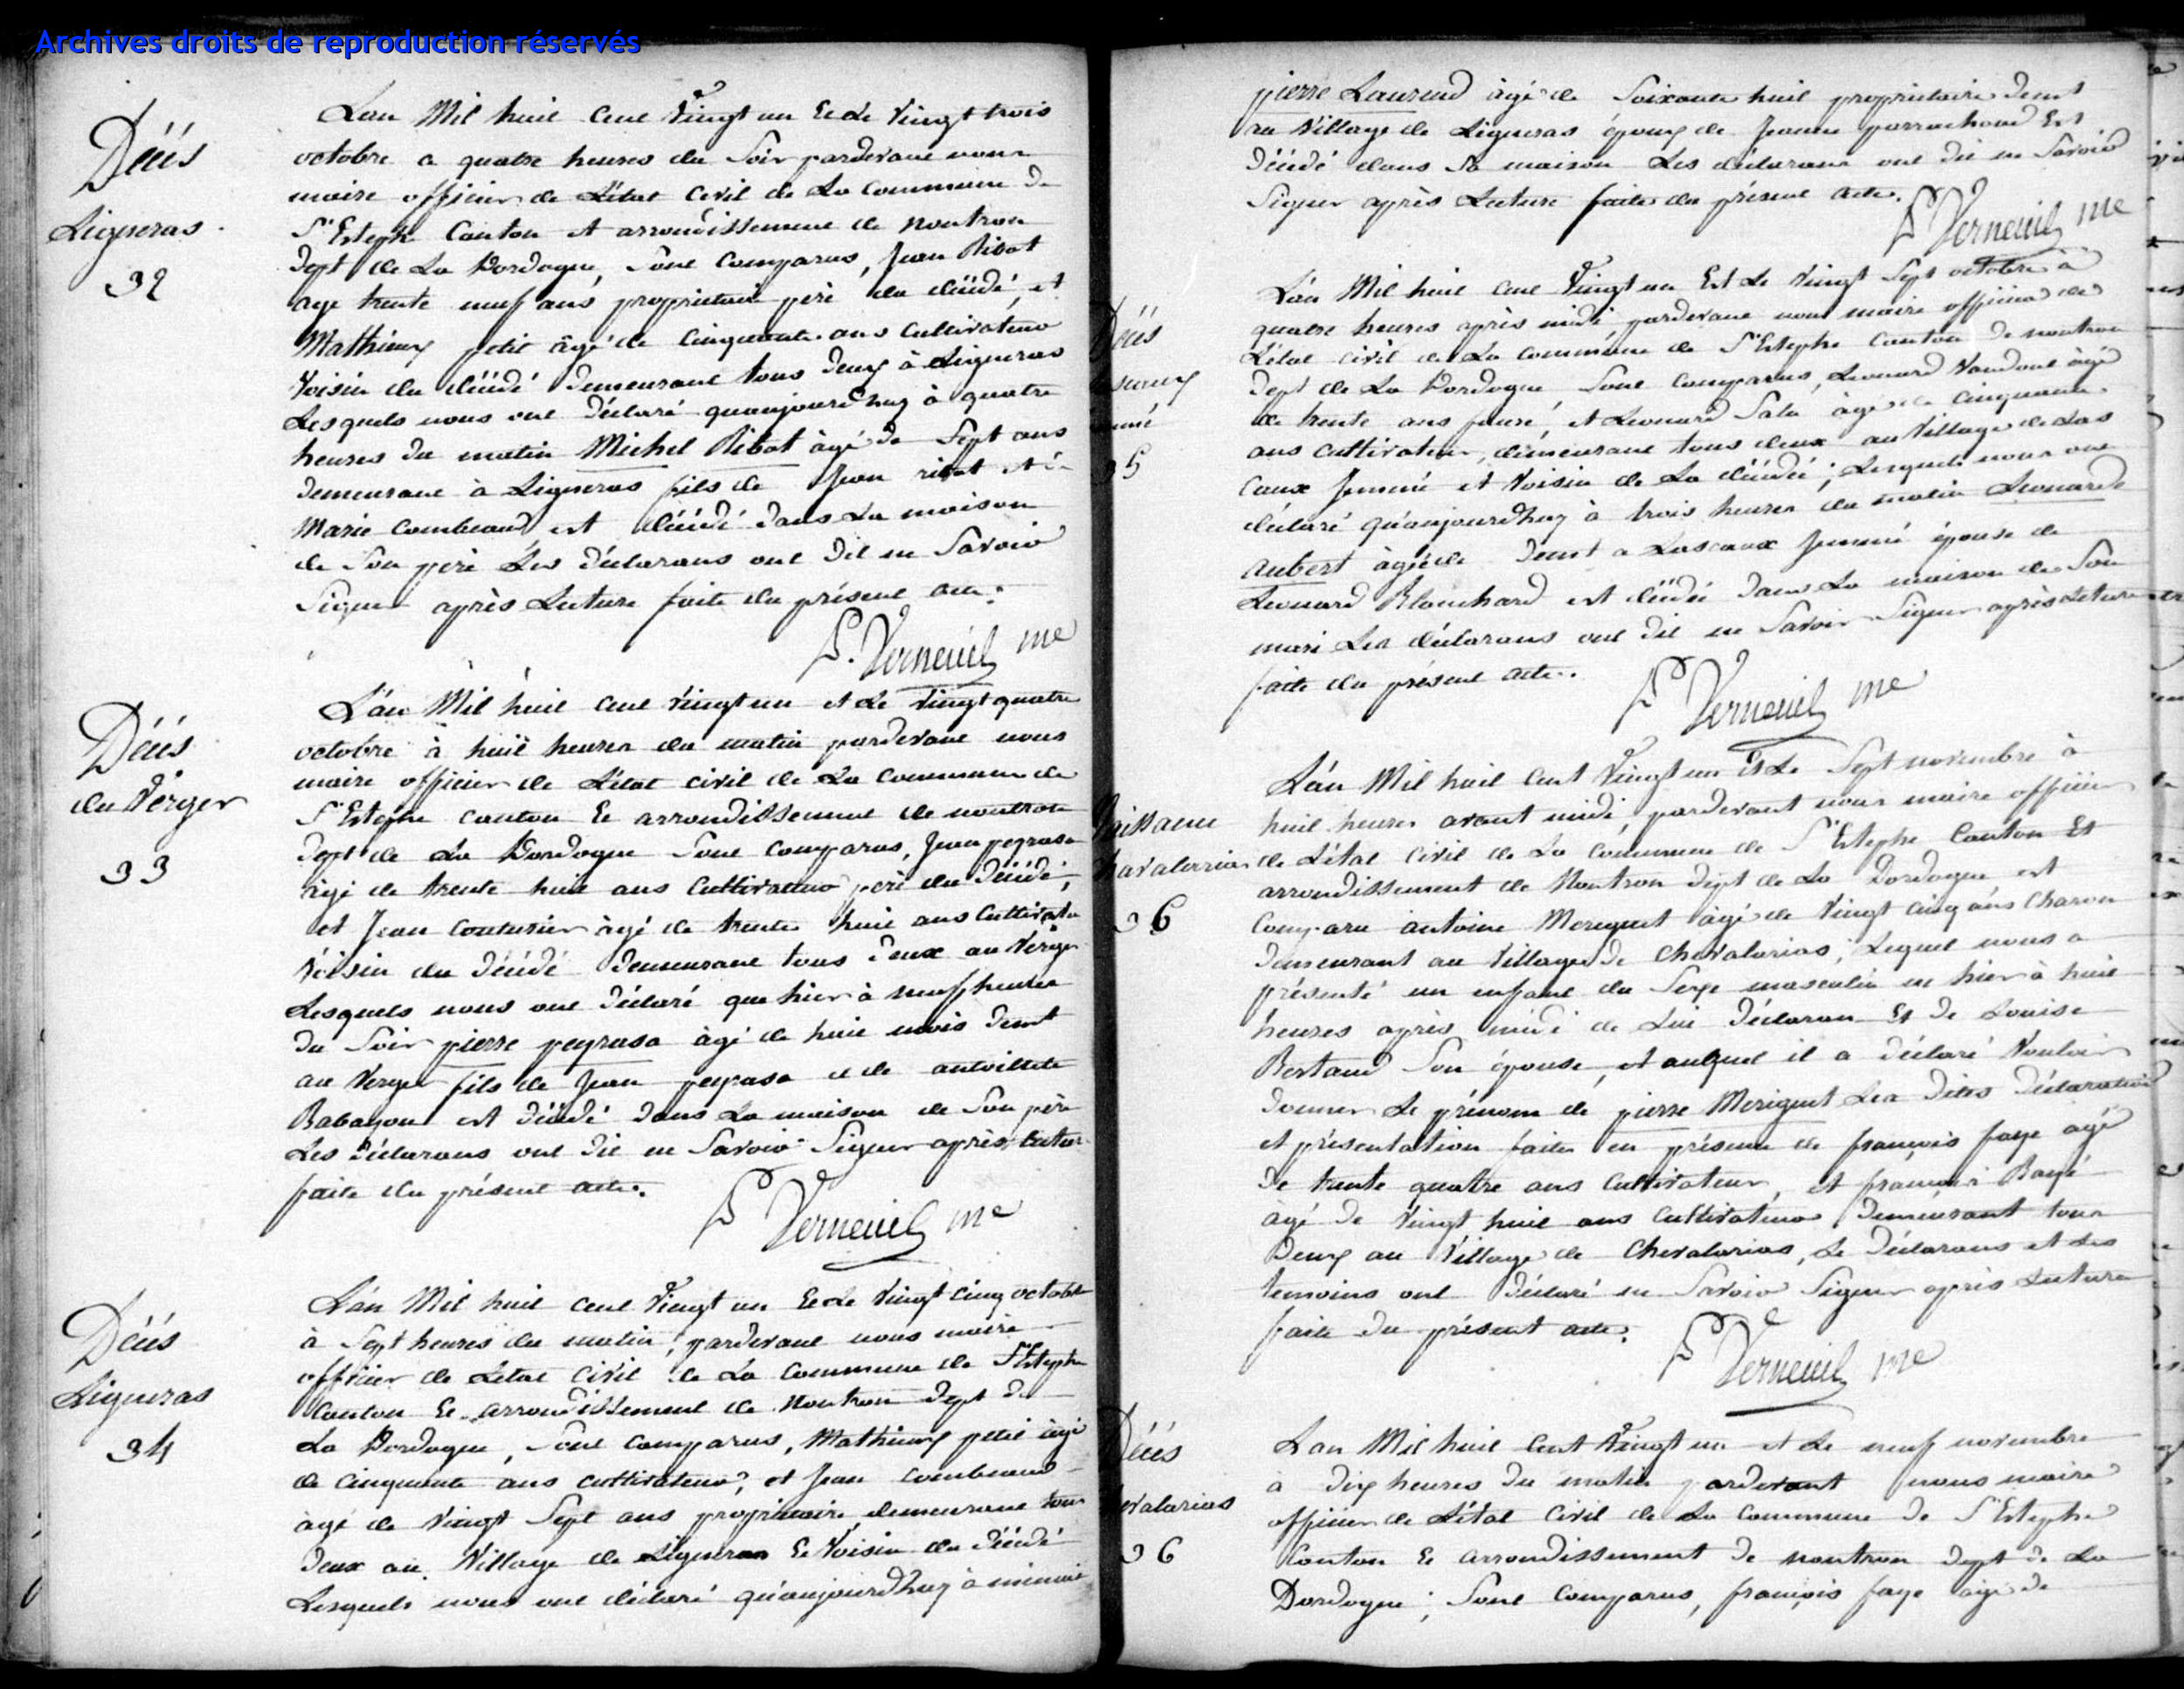 Archives droits de reproduction réservés
Décès
Ligneras
32
Lan Mil huil Cent Vingt un Et Le Vingt trois
octobre a quatre heures du Soir pardevant nous
maire officier de L'état Civil de La Commune de
St Estephe Canton et arrondissement de Nontron
Dept de La Dordogne, Sont Comparus, Jean Ribot
age trente neuf ans proprietaire père du décédé, et
Mathieux petit âgé de Cinquante ans Cultivateur
Voisin du décédé Demeurant tous Deux à Ligneras
Lesquels nous ont Déclaré quaujourdhuy à quatre
heures du matin Michel Ribot âgé de Sept ans
Demeurant à Ligneras fils de Jean ribot et de
Marie Combeaud, est décédé dans La maison
de Son père Les Déclarans ont Dit ne Savoir
Signer après Lecture faite du présent acte.
P. Verneuil me
Décès
du Verger
33
L'an Mil huil Cent Vingt un et Le Vingt quatre
octobre à huil heures du matin pardevant nous
maire officier de L'état civil de La Commune de
St Estephe canton Et arrondissement de nontron
Dept de La Dordogne Sont Comparus, Jean
âgé de trente huil ans Cultivateur père du Décédé,
et Jean Couturier âgé de trente huil ans Cultivateur
Voisin du Décédé Demeurant tous Deux au Verger
Lesquels nous ont Déclaré que hier à neuf heures
du Soir pierre âgé de huil mois Demt
au Verger fils de Jean et de
est Décédé Dans La maison de Son père
Les Déclarans ont Dit ne Savoir Signer après Lecture
faite du présent acte.
P Verneuil me
Décès
Ligneras
34
L'an Mil huil Cent Vingt un Et Le Vingt Cinq octobre
à Sept heures du matin, pardevant nous maire
officier de Létat Civil de La Commune de St Estephe
Canton Et arrondissement de Nontron Dept de
La Dordogne, Sont Comparus, Mathieux petit âgé
de Cinquante ans cultivateur, et Jean Combeaud
âgé de Vingt Sept ans proprietaire demeurant tous
Deux au Village de Ligneras Et Voisin du Décédé
Lesquels nous ont déclaré qu'aujourdhuy à minuit
pierre Laurend âgé de Soixante huil proprietaire Demt
au Village de Ligneras époux de Jeanne Est
Décédé dans Sa maison Les déclarans ont Dit ne Savoir
Signer après Lecture faite du présent acte.
P Verneuil me
Décès
35
L'an Mil huil Cent Vingt un Et Le Vingt Sept octobre à
quatre heures après midi, pardevant nous maire officier de
L'état Civil de La Commune de St Estephe Canton de nontron
Dept de La Dordogne, Sont Comparus, Leonard âgé
de trente ans, et Leonard Sala âgé de Cinquante
ans Cultivateur, demeurant tous deux au Village de Las
Caux Jemmé et Voisin de La décédée; Lesquels nous ont
déclaré qu'aujourdhuy à trois heures du matin Leonarde
Aubert âgée de Demt a Lascaux Jemmé épouse de
Leonard Blanchard est décédée Dans La maison de Son
mari Les déclarans ont Dit ne Savoir Signer après Lecture
faite du présent acte.
P Verneuil me
Naissance
Chavalarias
36
L'an Mil huil Cent Vingt un Et Le Sept novembre à
huil heures avant midi, pardevant nous maire officier
de L'état Civil de La Commune de St Estephe Canton Et
arrondissement de Nontron Dept de La Dordogne est
Comparu antoine Meriguet âgé de Vingt cinq ans Charon
Demeurant au Village de Chevalarias, Lequel nous a
présenté un enfant du Sexe masculin né hier à huil
heures après midi de Lui Déclarant Et De Louise
Bertaud Son épouse, et auquel il a déclaré Vouloir
Donner Le prénom de pierre Meriguet Les Dites Déclaration
et présentation faites en présence de françois faye agé
De trente quatre ans Cultivateur, et françois Bayé
agé De Vingt huil ans Cultivateur Demeurant tous
Deux au Village de Chevalarias, Le Déclarans et Les
temoins ont Déclaré ne Savoir Signer après Lecture
faite du présent acte.
P Verneuil me
Décès
evalarias
36
Lan Mil huil Cent Vingt un et Le neuf novembre
à Dix heures Du matin pardevant nous maire
officier de L'état Civil de La Commune De St Estephe
Canton Et arrondissement De nontron Dept De La
Dordogne; Sont Comparus, françois faye âgé de